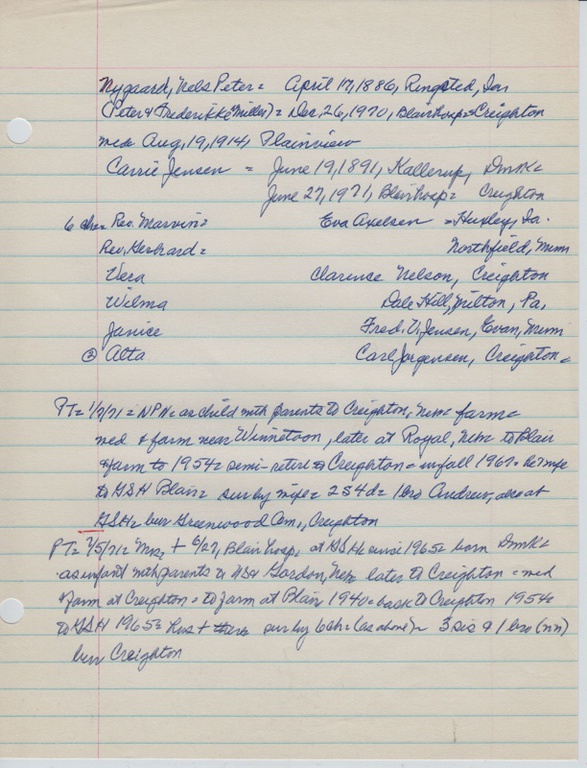 Nygaard, Nels Peter = April 17, 1886, Ringsted, Ia
(Peter & Frederikke Miller) = Dec. 26, 1970, Blair hosp = Creighton
med Aug, 19, 1914, Plainview
Carrie Jensen = June 19, 1891, Kallerup, Dmk =
June 27, 1971, Blair hosp = Creighton
6 ch = Rev. Marvin = Eva Axelsen = Huxley, Ia.
Rev. Gerhard = Northfield, Minn
Vera Clarence Nelson, Creighton
Wilma Dale Hill, Milton, Pa,
Janice Fred. V. Jensen, Evan, Minn
② Alta Carl Jorgensen, Creighton =
PT = 1/7/71 = NPN = as child with parents to Creighton, Neb = farm =
med & farm near Winnetoon, later at Royal, Neb = to Blair
& farm to 1954 = semi-retire to Creighton = in fall 1967 =
to GSH Blair = sur by wife = 2 S 4 d = 1 bro Andrew, also at
GSH = bur Greenwood Cem, Creighton
PT = 7/5/71 = Mrs, + 6/27, Blair hosp, at GSH since 1965 = born Dmk =
as infant with parents to Gordon, Neb = later to Creighton = med
& farm at Creighton = to farm at Blair 1940 = back to Creighton 1954 =
to GSH 1965 = hus + there sur by 6 ch = (as above) = 3 sis & 1 bro (nn)
bur Creighton